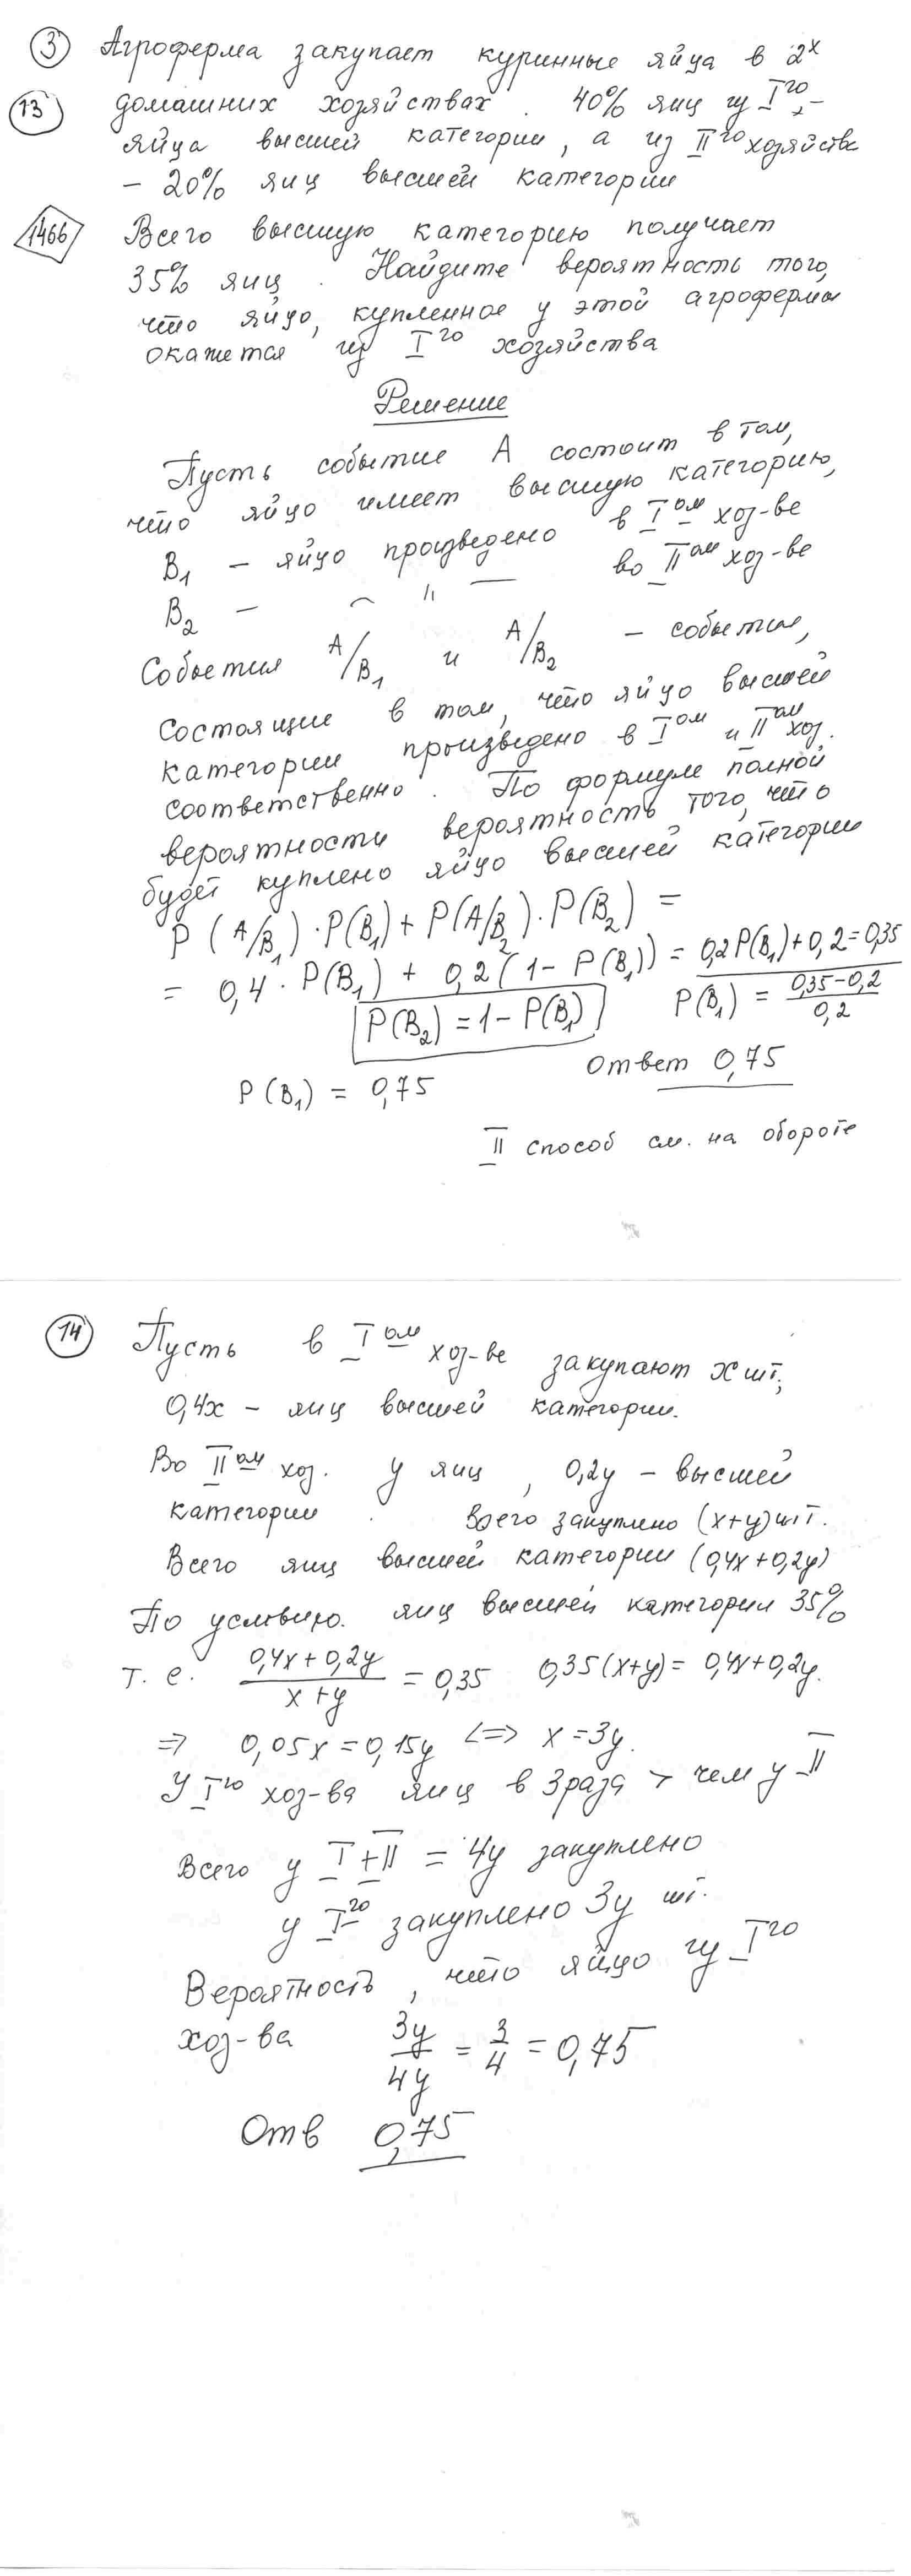 3 Агроферма закупает куринные яйца в 2х
13 домашних хозяйствах. 40% яиц из I го –
яйца высшей категории, а из II го хозяйства
– 20% яиц высшей категории
1466 Всего высшую категорию получает
35% яиц. Найдите вероятность того,
что яйцо, купленное у этой агрофермы
окажется из I го хозяйства
Решение
Пусть событие A состоит в том,
что яйцо имеет высшую категорию,
B1 – яйцо произведено в I ом хоз-ве
B2 – — // — во II ом хоз-ве
События A/B1 и A/B2 – события,
состоящие в том, что яйцо высшей
категории произведено в I ом и II ом хоз.
соответственно. По формуле полной
вероятности вероятность того, что
будет куплено яйцо высшей категории
P(A/B1)·P(B1)+P(A/B2)·P(B2) =
= 0,4·P(B1) + 0,2(1–P(B1)) = 0,2P(B1)+0,2=0,35
P(B2)=1–P(B1) P(B1) = (0,35–0,2)/0,2
P(B1) = 0,75 Ответ 0,75
II способ см. на обороте
14 Пусть в I ом хоз-ве закупают x шт,
0,4x – яиц высшей категории.
Во II ом хоз. y яиц, 0,2y – высшей
категории. Всего закуплено (x+y) шт.
Всего яиц высшей категории (0,4x+0,2y)
По условию. яиц высшей категории 35%
т. е. (0,4x+0,2y)/(x+y) = 0,35 0,35(x+y)= 0,4x+0,2y.
⇒ 0,05x=0,15y <=> x=3y.
У I го хоз-ва яиц в 3 раза > чем у II
Всего у I+II = 4y закуплено
у I го закуплено 3y шт.
Вероятность, что яйцо из I го
хоз-ва 3y/4y = 3/4 = 0,75
Отв 0,75